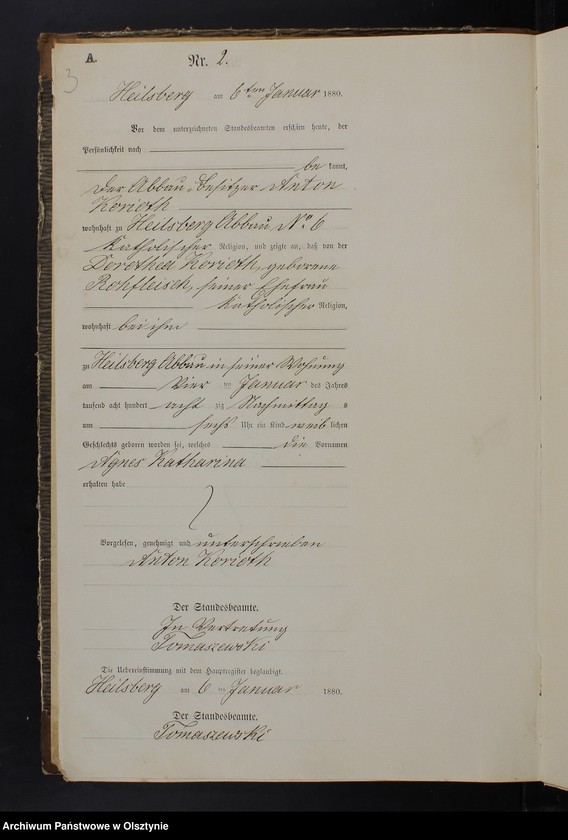 A.
Nr. 2.
3
Heilsberg am 6ten Januar 1880.
Vor dem unterzeichneten Standesbeamten erschien heute, der
Persönlichkeit nach
be kannt,
der Abbau-Besitzer Anton
Korioth
wohnhaft zu Heilsberg Abbau No 6
katholischer Religion, und zeigte an, daß von der
Dorothea Korioth, geborene
Rohfleisch, seiner Ehefrau
katholischer Religion,
wohnhaft bei ihm
zu Heilsberg Abbau in seiner Wohnung
am Vier ten Januar des Jahres
tausend acht hundert acht zig Nachmittag s
um sechs Uhr ein Kind weib lichen
Geschlechts geboren worden sei, welches die Vornamen
Agnes Katharina
erhalten habe
Vorgelesen, genehmigt und unterschrieben
Anton Korioth
Der Standesbeamte.
In Vertretung
Tomaszewski
Die Uebereinstimmung mit dem Hauptregister beglaubigt.
Heilsberg am 6 ten Januar 1880.
Der Standesbeamte.
Tomaszewski
Archiwum Państwowe w Olsztynie